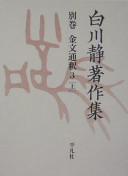 白川静著作集
別巻 金文通釈3 [上]
平凡社